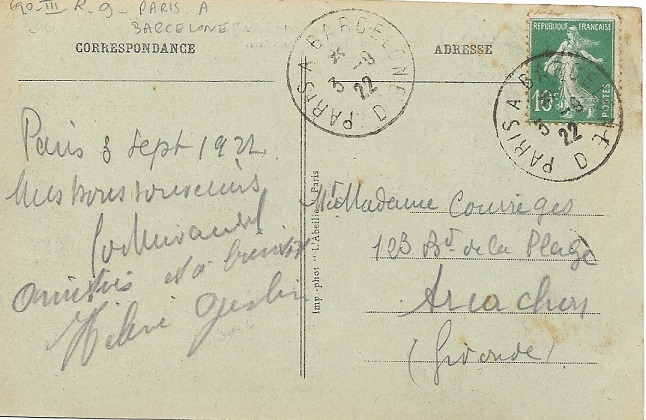 R. 9 - PARIS A
BARCELONE
CORRESPONDANCE
ADRESSE
PARIS A BARCELONE D
3 - 9
22
REPUBLIQUE FRANÇAISE
10c
POSTES
PARIS A BARCELONE D
3 - 9
22
Paris 3 Sept 1922
Mes bons souvenirs
amitiés et à bientôt
Imp. phot "L'Abeille" Paris
Madame Courrèges
123 Bd de la Plage
Arcachon
(Gironde)